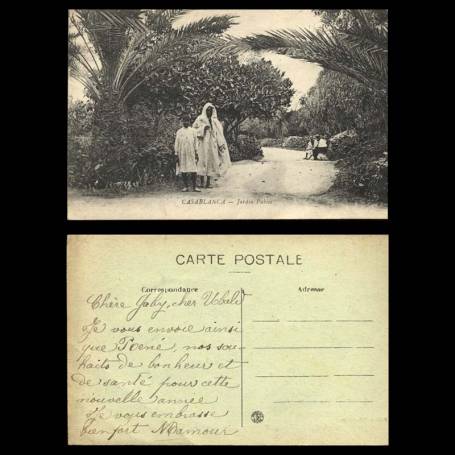 CASABLANCA — Jardin Public
CARTE POSTALE
Correspondance
Adresse
Chère Gaby, cher Ubald
Je vous envoie ainsi
que René, nos sou-
haits de bonheur et
de santé pour cette
nouvelle année
Je vous embrasse
bien fort Mamour